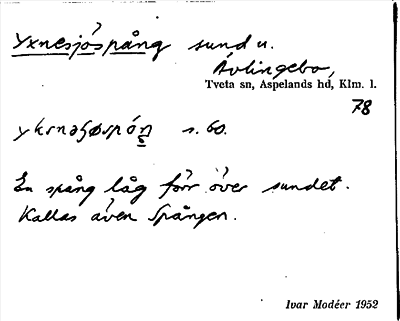 Yxnesjöspång sund u.
Övlingebo,
Tveta sn, Aspelands hd, Klm. l.
78
yksnəʂøspóŋ s. 60.
En spång låg förr över sundet.
Kallas även Spången.
Ivar Modéer 1952